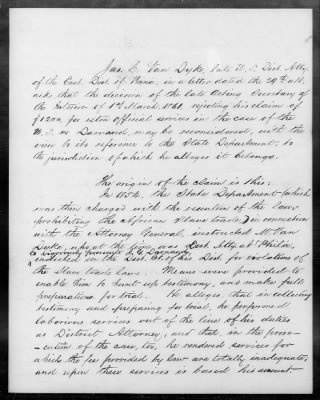 Jas. C. Van Dyke, late U. S. Dist. Atty.
of the East. Dist. of Penna., in a letter dated the 29th ult.
asks that the decision of the late Acting Secretary of
the Interior of 1st March 1861, rejecting his claim of
for extra official services in the case of the
U. S. vs Darnaud, may be reconsidered, with the
view to its reference to the State Department, to
the jurisdiction of which he alleges it belongs.
The origin of the claim is this:
In 1854, the State Department (which
was then charged with the execution of the laws
prohibiting the African Slave trade) in connection
with the Attorney General, instructed Mr. Van
Dyke, who at the time, was Dist. Atty. at Phila.
to vigorously prosecute
indicted in the Dist. of his Dist. for violations of
the Slave trade laws. Means were provided to
enable him to hunt up testimony, and make full
preparations for trial. He alleges, that in collecting
testimony and preparing for trial, he performed
laborious services out of the line of his duties
as District Attorney; and that in the prose-
-cution of the case, too, he rendered services for
which the fee provided by law are totally inadequate;
and upon these services is based his account.